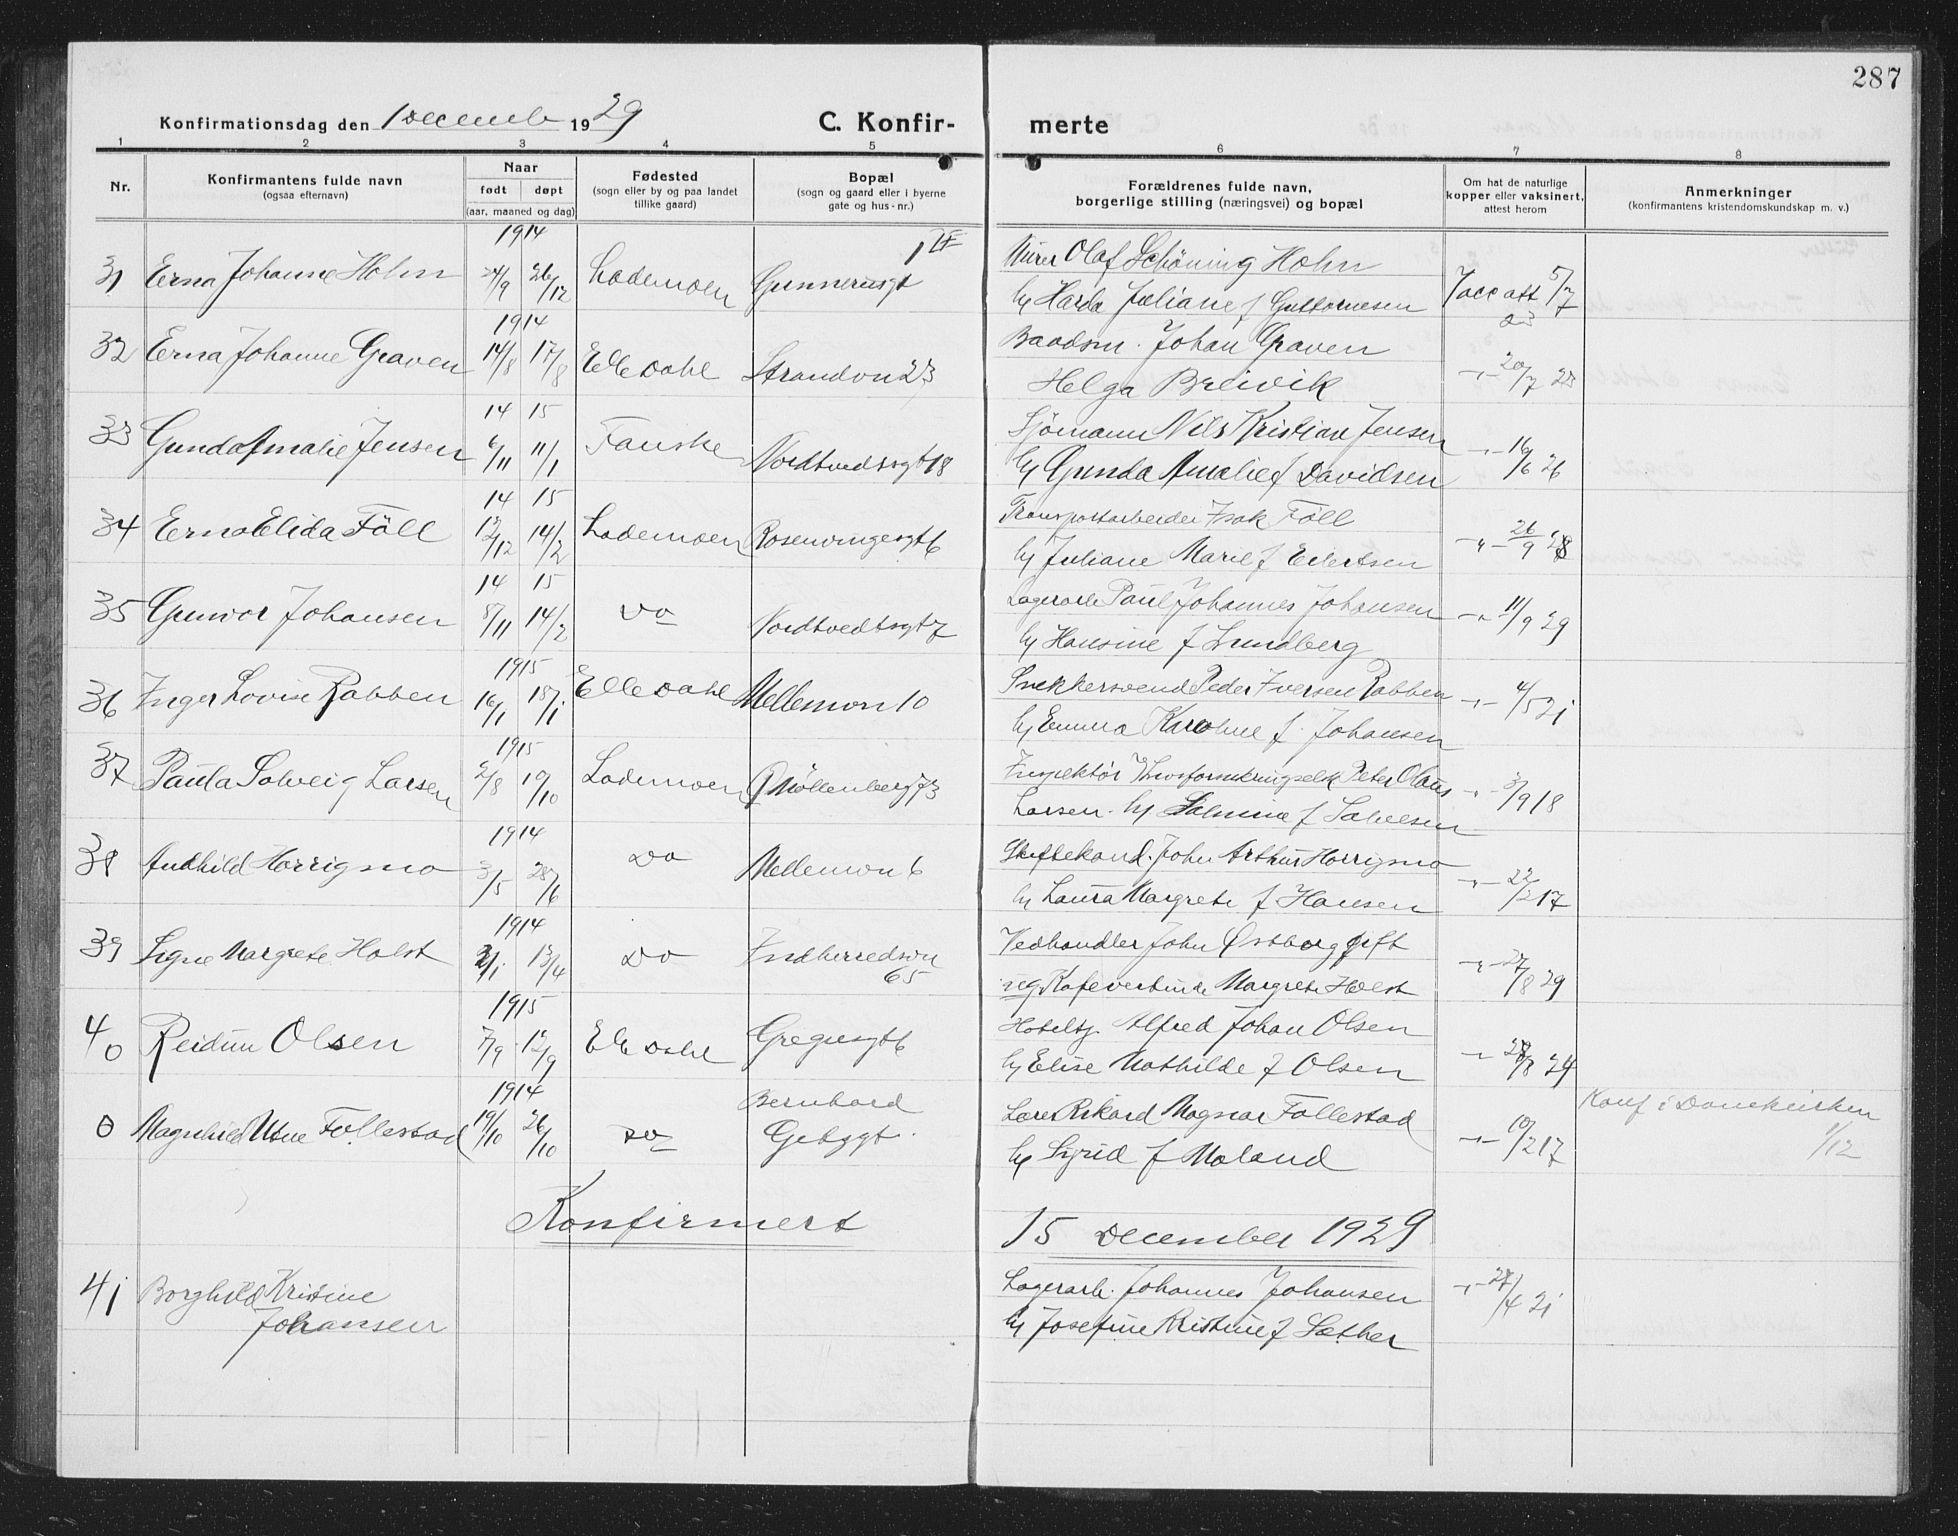 287
Konfirmationsdag den 1 December 1929 C. Konfir- merte
1 2 3 4 5 6 7 8
Nr. Konfirmantens fulde navn (ogsaa efternavn) Naar født døpt (aar, maaned og dag) Fødested (sogn eller by og paa landet tillike gaard) Bopæl (sogn og gaard eller i byerne gate og hus-nr.) Forældrenes fulde navn, borgerlige stilling (næringsvei) og bopæl Om hat de naturlige kopper eller vaksinert, attest herom Anmerkninger (konfirmantens kristendomskundskap m. v.)
1914
31 Erna Johanne Holm 24/9 26/12 Lademoen Gunnerusgt Murer Olaf Schöning Holm
Harda Juliane f Guttormsen Vacc att 5/7 23
1914
32 Erna Johanne Graven 14/8 17/8 E Ile Dahl Strandvn 23 Baadsm. Johan Graven
Helga Breivik -"- 20/7 28
14 15
33 Gunda Amalie Jensen 6/11 11/1 Fauske Nordtvedtsgt 18 Sjömann Nils Kristian Jensen
Gunda Amalie f Davidsen -"- 16/6 26
14 15
34 Erna Elida Föll 12/12 14/2 Lademoen Rosenvingesgt 6 Transportarbeider Isak Föll
Juliane Marie f Eilertsen -"- 26/9 28
14 15
35 Gunvor Johansen 8/11 14/2 Do Nordtvedtsgt 7 Lagerarb Paul Johannes Johansen
Hansine f Lundberg -"- 11/9 29
1915
36 Inger Lovise Rabben 16/1 18/1 E Ile Dahl Mellemvn 10 Snekkersvend Peder Iversen Rabben
Emma Karoline f. Johansen -"- 4/5 21
1915
37 Paula Solveig Larsen 2/8 10/10 Lademoen Ø Möllenberg 73 Inspektör Peter Olaus
Larsen. f Salvesen -"- 3/9 18
1914
38 Andhild Horrigmo 3/5 28/6 Do Mellemvn 6 John Arthur Horrigmo
Laura Margrete f Hansen -"- 22/2 17
1914
39 Signe Margrete Holst 2/1 13/4 Do Indherredsvn 65 Vedhandler John Østborg gift
Kafevertinde Margrete Holst -"- 27/8 29
1915
40 Reidun Olsen 7/9 12/9 E Ile Dahl Gregusgt 6 Hoteltj. Alfred Johan Olsen
Elise Mathilde f Olsen -"- 27/8 24
1914
0 Magnhild Utne Follestad 19/10 26/10 Do Bernhard Getzgt. Lærer Rikard Magnar Follestad
Sigrid f Moland -"- 10/2 17 Konf i Domkirken 1/12
Konfirmert 15 December 1929
41 Borghild Kristine Johansen Lagerarb. Johannes Johansen
Josefine Kristine f Sæther -"- 27/4 21